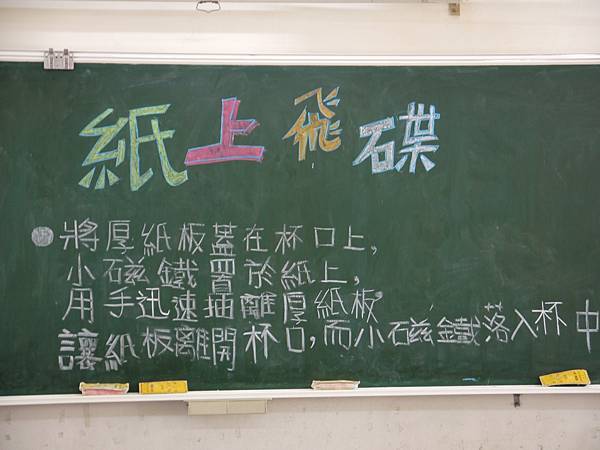 紙上飛碟
將厚紙板蓋在杯口上,
小磁鐵置於紙上,
用手迅速插離厚紙板,
讓紙板離開杯口,而小石磁鐵落入杯中